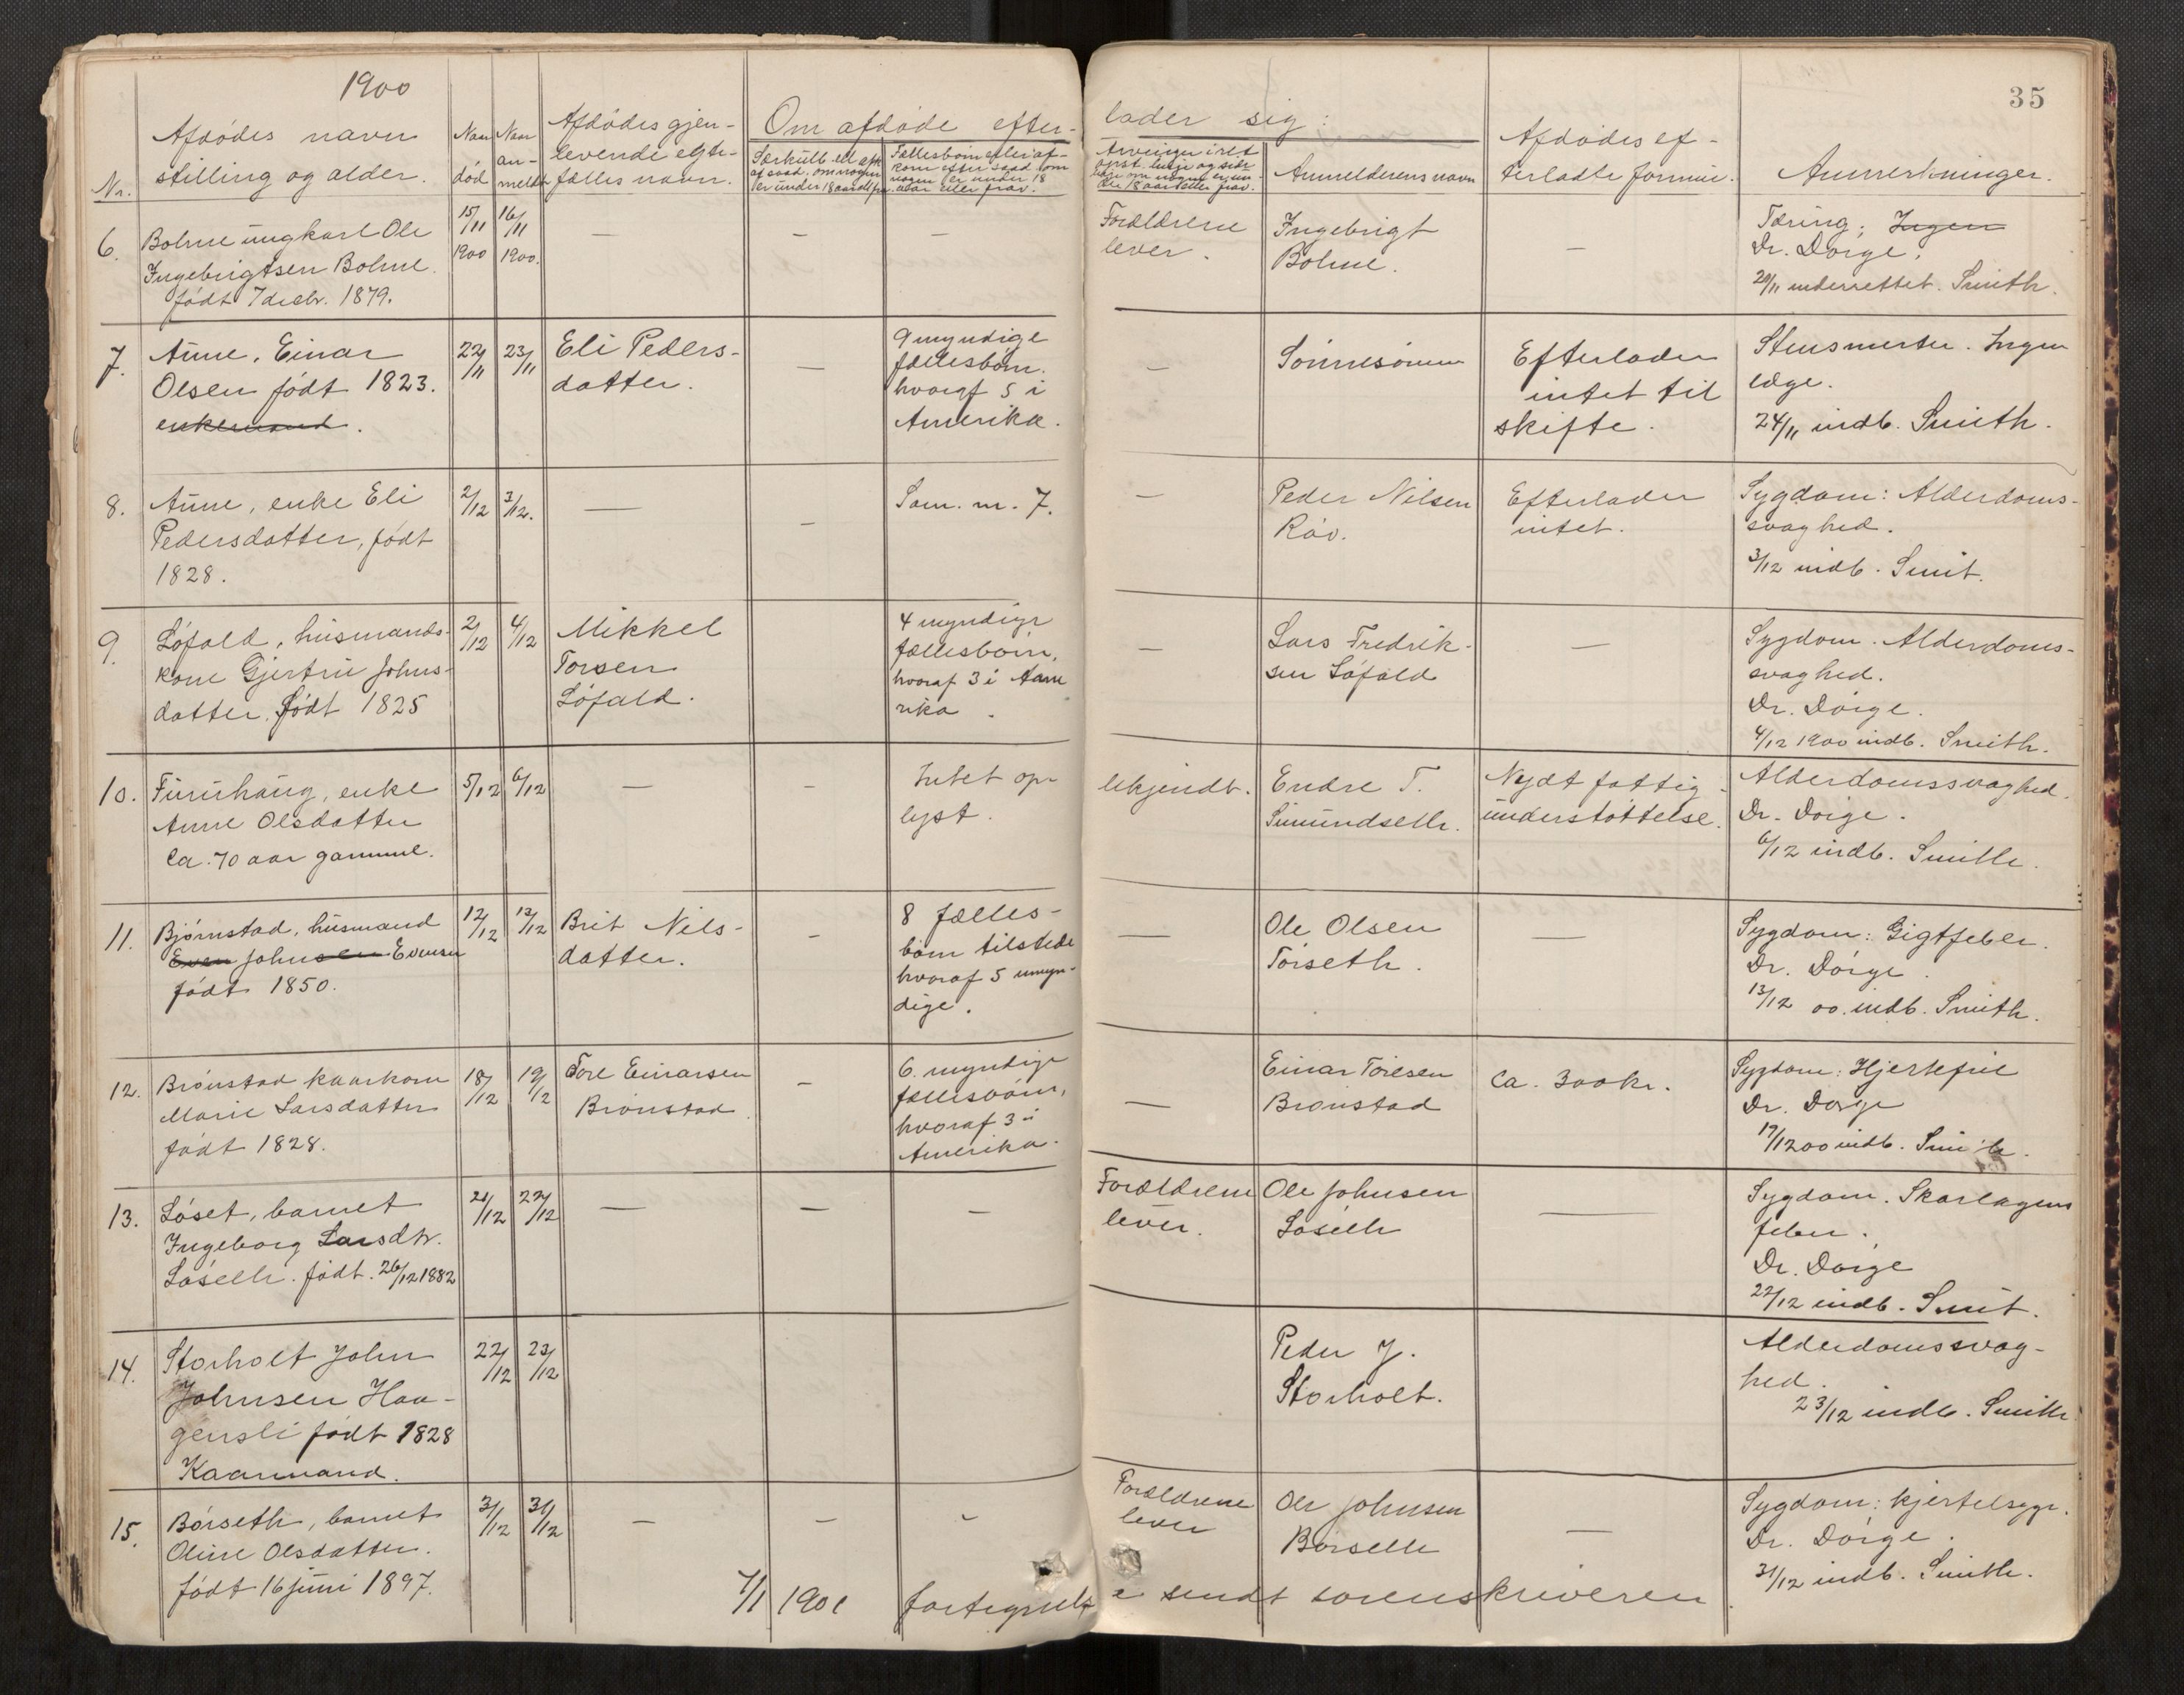 1900
35
Nr.
Afdødes navn
stilling og alder.
Naar
død
Naar
an-
meldt
Afdødes gjen-
levende egte-
fælles navn.
Om afdøde efter-
lader sig:
Særkuld
Anmelderens navn
Afdødes ef-
terladte formue.
Anmerkninger.
6.
Bolme ungkarl Ole
Ingebrigtsen Bolme.
født 7 decbr. 1879.
15/11
1900
16/11
1900.
—
—
—
Forældrene
lever.
Ingebrigt
Bolme.
—
Tæring; Ingen
Dr. Dørge.
20/11 underrettet. Smith.
7.
Aune, Einar
Olsen født 1823.
enkemand.
22/11
23/11
Eli Peders-
datter.
—
9 myndige
fællesbørn.
hvoraf 5 i
Amerika.
—
Sønnesønnen
Efterlader
intet til
skifte.
Stensmerter. Ingen
læge.
24/11 indb. Smith.
8.
Aune, enke Eli
Pedersdatter, født
1828.
2/12
3/12.
—
—
Som. n. 7.
—
Peder Nilsen
Røv.
Efterlader
intet.
Sygdom: Alderdoms-
svaghed.
3/12 indb. Smit.
9.
Løfald, husmands-
kone Gjertru Johns-
datter, født 1825
2/12
4/12
Mikkel
Torsen
Løfald.
4 myndige
fællesbørn,
hvoraf 3 i Ame
rika.
—
Lars Fredrik-
sen Løfald
—
Sygdom. Alderdoms-
svaghed.
Dr. Dørge.
4/12 1900 indb. Smith.
10.
Furuhaug, enke
Anne Olsdatter
Ca. 70 aar gammel.
5/12
6/12
—
—
Intet op-
lyst.
Ubekjendt.
Endre T.
Simundseth.
Nydt fattig-
understøttelse.
Alderdomssvaghed.
Dr. Dørge.
6/12 indb. Smith.
11.
Bjørnstad, husmand
Even Johnsen Evensen
født 1850.
12/12
13/12
Brit Nils-
datter.
—
8 fælles-
børn tilstede
hvoraf 5 umyn-
dige.
—
Ole Olsen
Törseth.
—
Sygdom: Gigtfeber.
Dr. Dørge.
13/12 00. indb. Smith.
12.
Brønstad kaarkone
Marie Larsdatter
født 1828.
18/12
19/12
Tore Einarsen
Brønstad.
—
6. myndige
fællesbørn,
hvoraf 3 i
Amerika.
—
Einar Toresen
Brønstad
Ca. 300 kr.
Sygdom: Hjertefeil
Dr. Dørge
19/12 00 indb. Smith.
13.
Løset, barnet
Ingeborg Larsdtr.
Løseth. født. 26/12 1882
21/12
22/12
—
—
—
Forældrene
lever.
Ole Johnsen
Løseth
—
Sygdom. Skarlagens
feber.
Dr. Dørge
22/12 indb. Smit.
14.
Storholt John
Johnsen Haa-
gensli født 1828
Kaarmand.
22/12
23/12
Peder J.
Storholt.
Alderdomssvag-
hed.
23/12 indb. Smith
15.
Børseth, barnet
Oline Olsdatter.
født 16 juni 1897.
31/12
31/12
—
—
—
Forældrene
lever
Ole Johnsen
Børseth
—
Sygdom: kjertelsyge.
Dr. Dørge.
31/12 indb. Smith.
7/1 1901 fortegnelse sendt sorenskriveren.